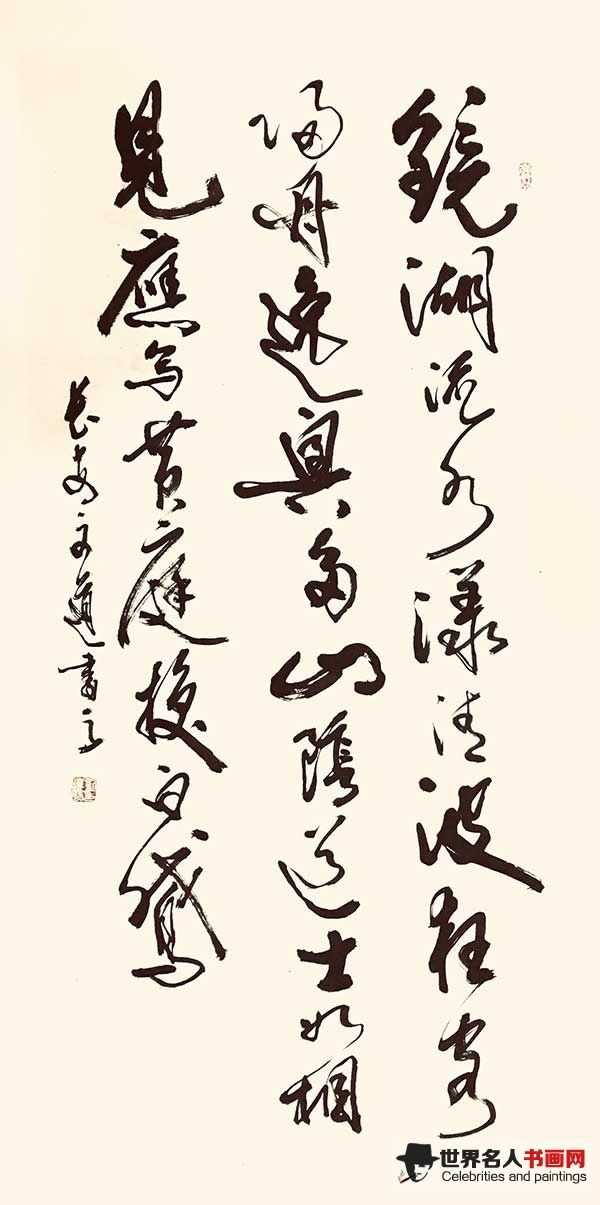 鏡湖流水漾清波狂客
歸舟逸興多山陰道士如相
見應寫黃庭換白鵝
長安文道書
世界名人书画网
Celebrities and paintings